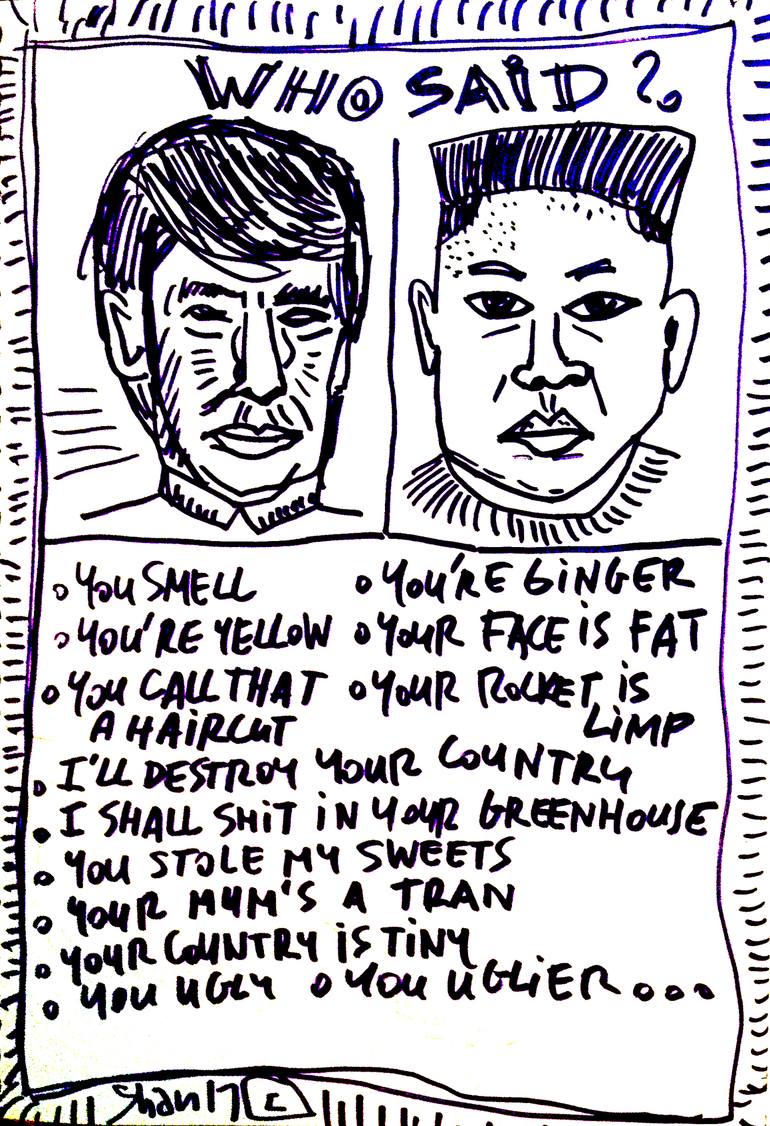 WHO SAiD?
o YOU SMELL
o YOU'RE GiNGER
o YOU'RE YELLOW
o YOUR FACE iS FAT
o YOU CALL THAT
A HAiRCUT
o YOUR ROCKET iS
LiMP
o I'LL DESTROY YOUR COUNTRY
• I SHALL SHiT iN YOUR GREENHOUSE
o YOU STOLE MY SWEETS
o YOUR MUM'S A TRAN
o YOUR COUNTRY iS TiNY
o YOU UGLY o YOU UGLiER...
Shan 17 C